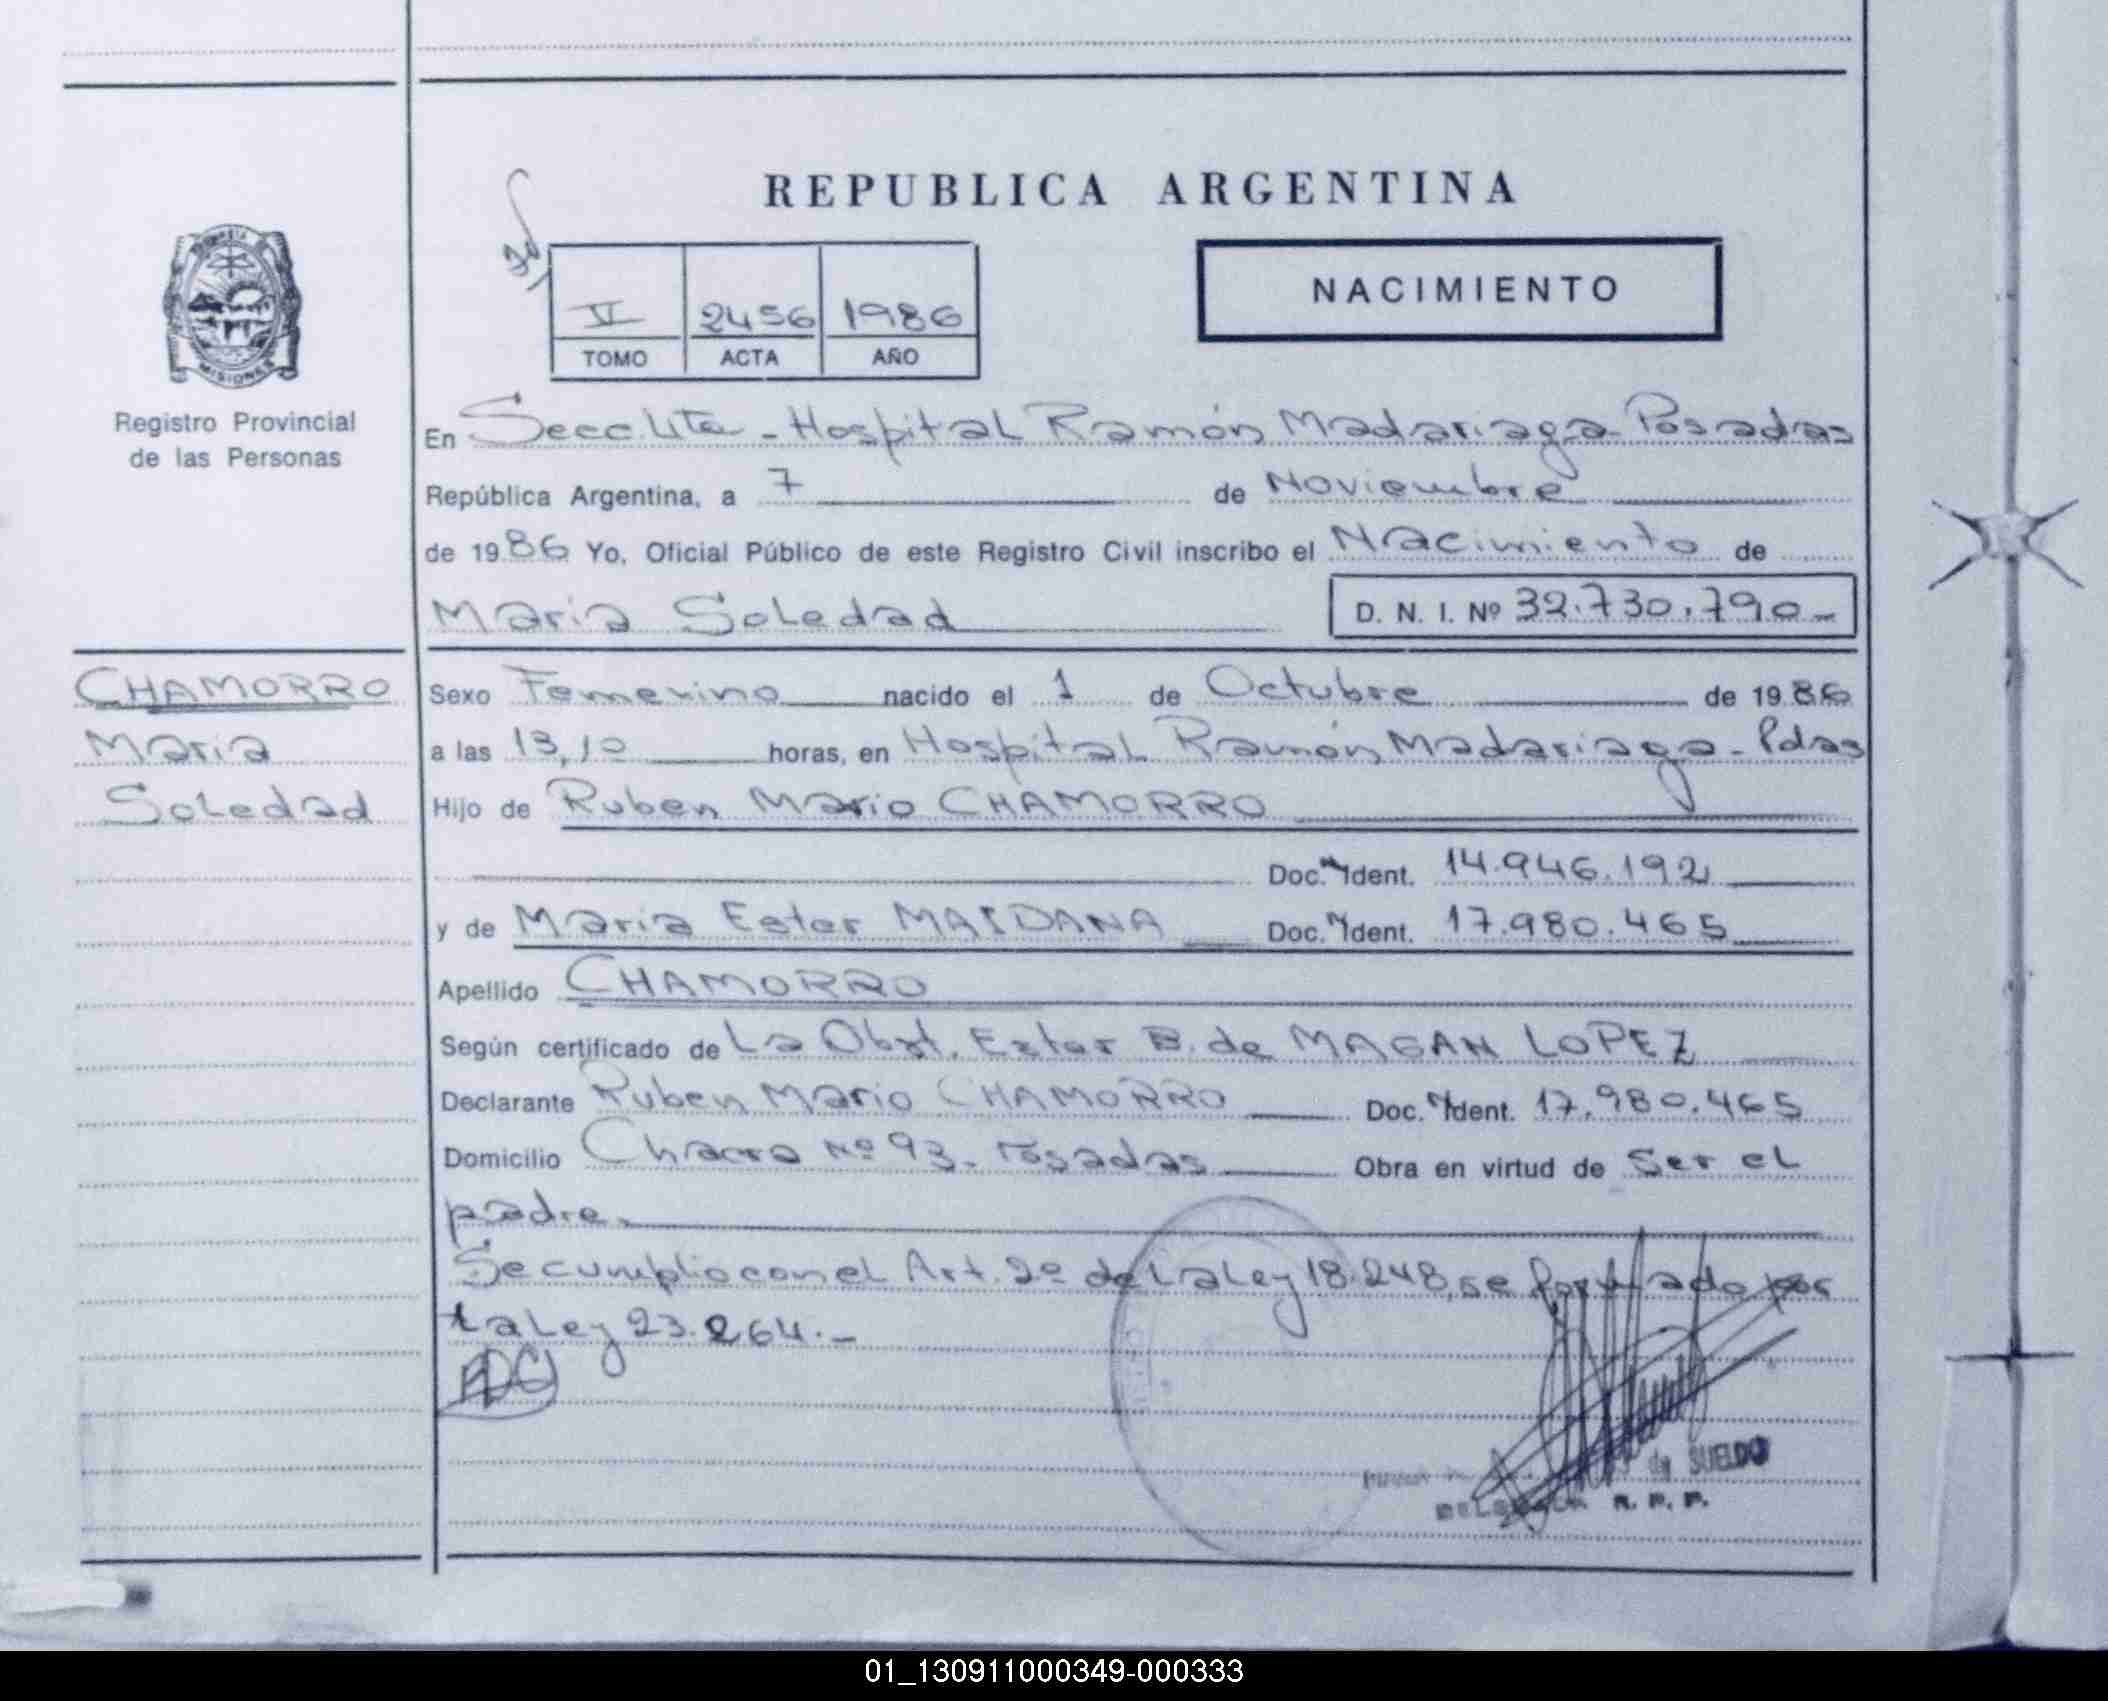 REPUBLICA ARGENTINA
NACIMIENTO
VI 2456 1986
TOMO ACTA AÑO
MISIONES
Registro Provincial
de las Personas
En Secc. Uta - Hospital Ramón Madariaga - Posadas
República Argentina, a 7 de Noviembre
de 1986 Yo, Oficial Público de este Registro Civil inscribo el Nacimiento de
Maria Soledad D. N. I. Nº 32.730.790.-
CHAMORRO
Maria
Soledad
Sexo Femenino nacido el 1 de Octubre de 1986
a las 13,10 horas, en Hospital Ramón Madariaga - Pdas
Hijo de Ruben Mario CHAMORRO
Doc. Ident. 14.946.192
y de Maria Ester MAIDANA Doc. Ident. 17.980.465
Apellido CHAMORRO
Según certificado de La Obst. Ester B. de MAGAN LOPEZ
Declarante Ruben Mario CHAMORRO Doc. Ident. 17.980.465
Domicilio Chacra Nº 93 - Posadas Obra en virtud de Ser el
padre.
Se cumplio con el Art. 2º de La Ley 18.248, se por
la Ley 23.264.-
de SUELDO
R. P. P.
01_130911000349-000333